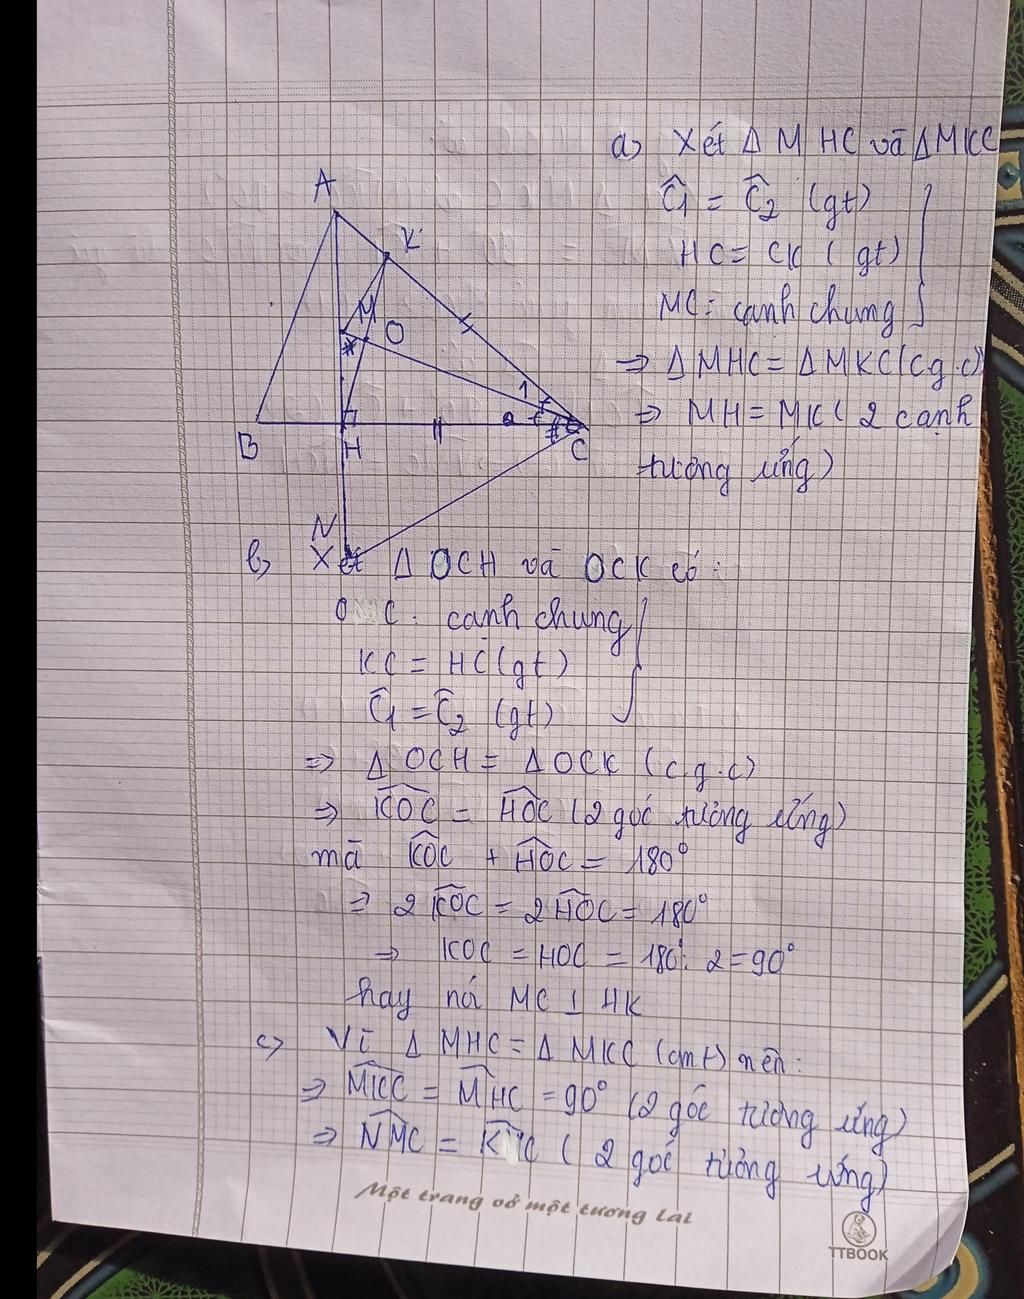 a) Xét Δ MHC và ΔMKC
Ĉ1 = Ĉ2 (gt)
HC = CK (gt)
MC: cạnh chung
=> Δ MHC = Δ MKC (c.g.c)
=> MH = MK ( 2 cạnh
tương ứng)
A
K
M
O
1
2
B
H
C
N
b) Xét Δ OCH và OCK có:
O C: cạnh chung
KC = HC (gt)
Ĉ1 = Ĉ2 (gt)
=> Δ OCH = Δ OCK (c.g.c)
=> K͡OC = H͡OC (2 góc tương ứng)
mà K͡OC + H͡OC = 180°
=> 2 K͡OC = 2 H͡OC = 180°
=> KOC = HOC = 180°: 2 = 90°
hay nói MC ⊥ HK
c) Vì Δ MHC = Δ MKC (cmt) nên:
=> M͡KC = M͡HC = 90° (2 góc tương ứng)
=> N͡MC = K͡MC ( 2 góc tương ứng)
Một trang vở một tương lai
TTBOOK